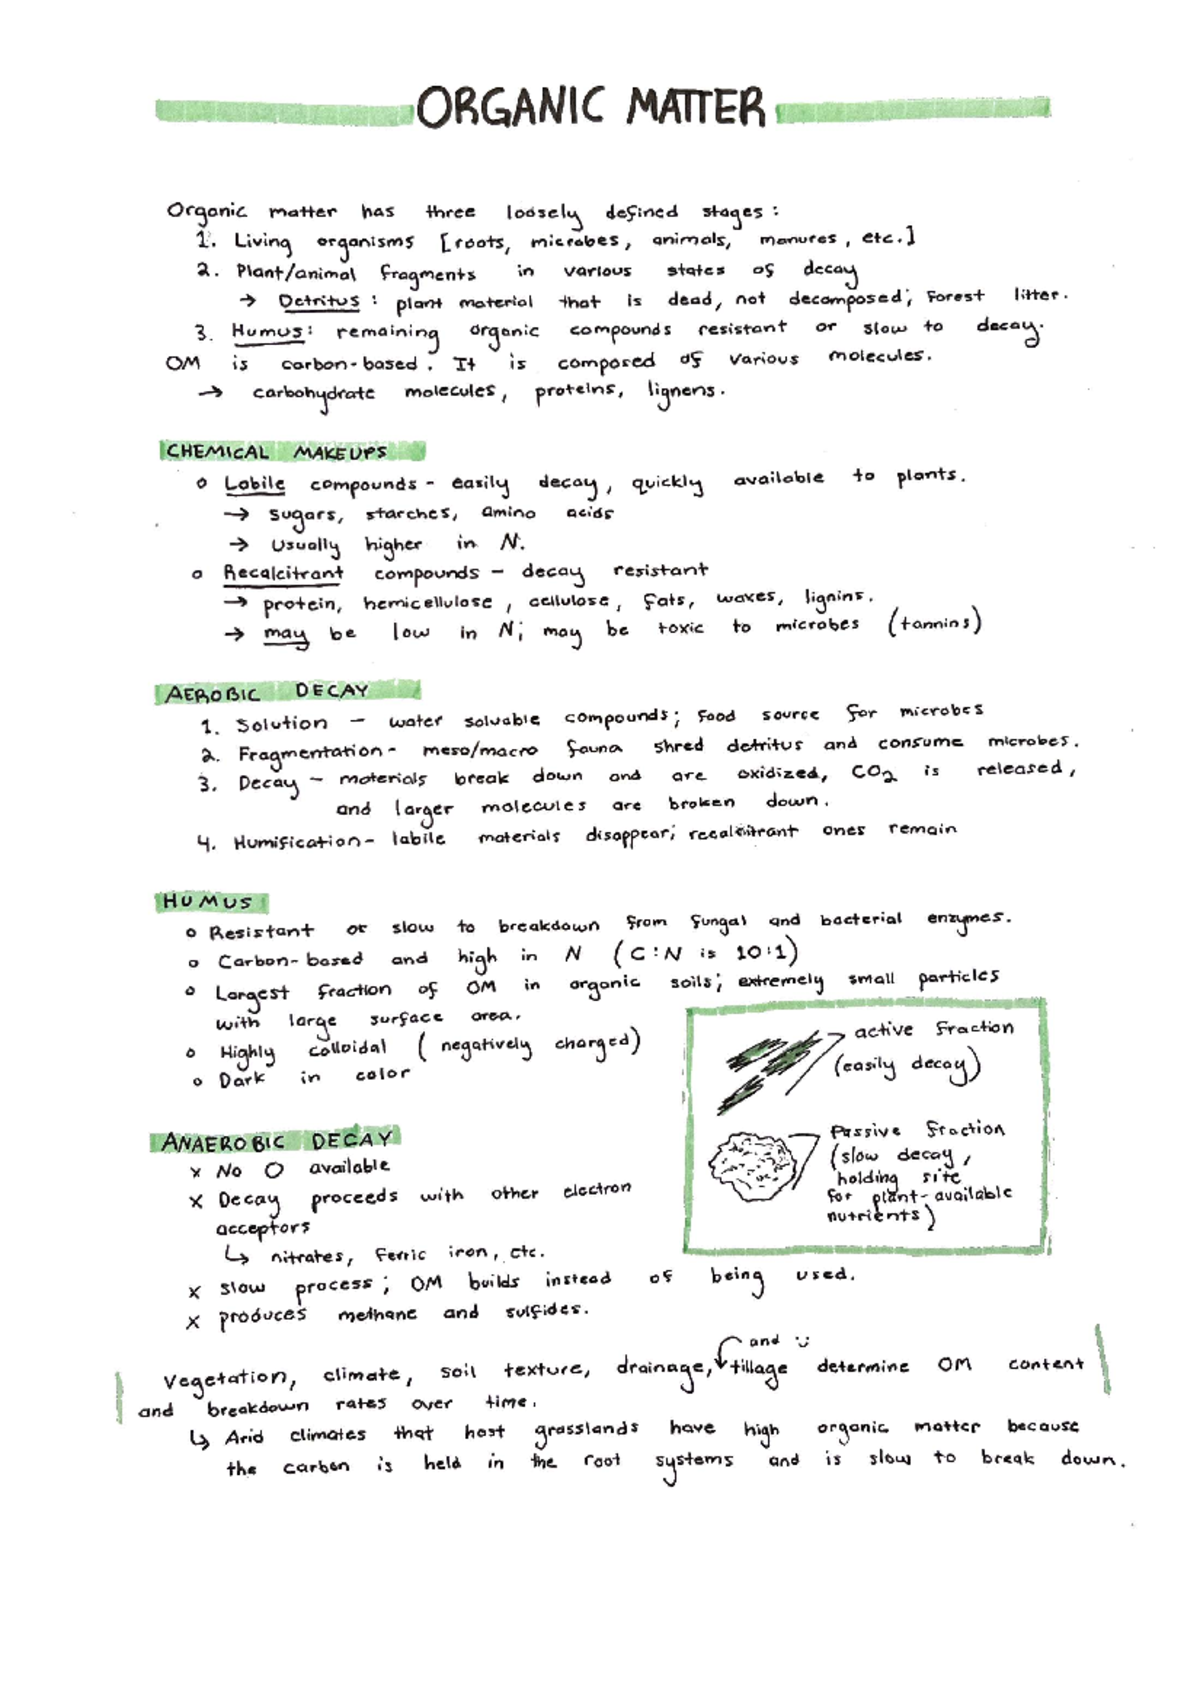 ORGANIC MATTER
Organic matter has three loosely defined stages:
1. Living organisms [roots, microbes, animals, manures, etc.]
2. Plant/animal fragments in various states of decay
→ Detritus: plant material that is dead, not decomposed; Forest litter.
3. Humus: remaining organic compounds resistant or slow to decay.
OM is carbon-based. It is composed of various molecules.
→ carbohydrate molecules, proteins, lignens.
CHEMICAL MAKEUPS
o Labile compounds - easily decay, quickly available to plants.
→ sugars, starches, amino acids
→ Usually higher in N.
o Recalcitrant compounds - decay resistant
→ protein, hemicellulose, cellulose, fats, waxes, lignins.
→ may be low in N; may be toxic to microbes (tannins)
AEROBIC DECAY
1. Solution - water solvable compounds; food source for microbes
2. Fragmentation - meso/macro fauna shred detritus and consume microbes.
3. Decay - materials break down and are oxidized, CO2 is released,
and larger molecules are broken down.
4. Humification - labile materials disappear; recalcitrant ones remain
HUMUS
o Resistant or slow to breakdown from fungal and bacterial enzymes.
o Carbon-based and high in N (C:N is 10:1)
o Largest fraction of OM in organic soils; extremely small particles
with large surface area.
o Highly colloidal (negatively charged)
o Dark in color
active fraction
(easily decay)
Passive fraction
(slow decay,
holding site
for plant-available
nutrients)
ANAEROBIC DECAY
x No O available
x Decay proceeds with other electron
acceptors
↳ nitrates, ferric iron, etc.
x slow process; OM builds instead of being used.
x produces methane and sulfides.
and :)
Vegetation, climate, soil texture, drainage, tillage determine OM content
and breakdown rates over time.
↳ Arid climates that host grasslands have high organic matter because
the carbon is held in the root systems and is slow to break down.